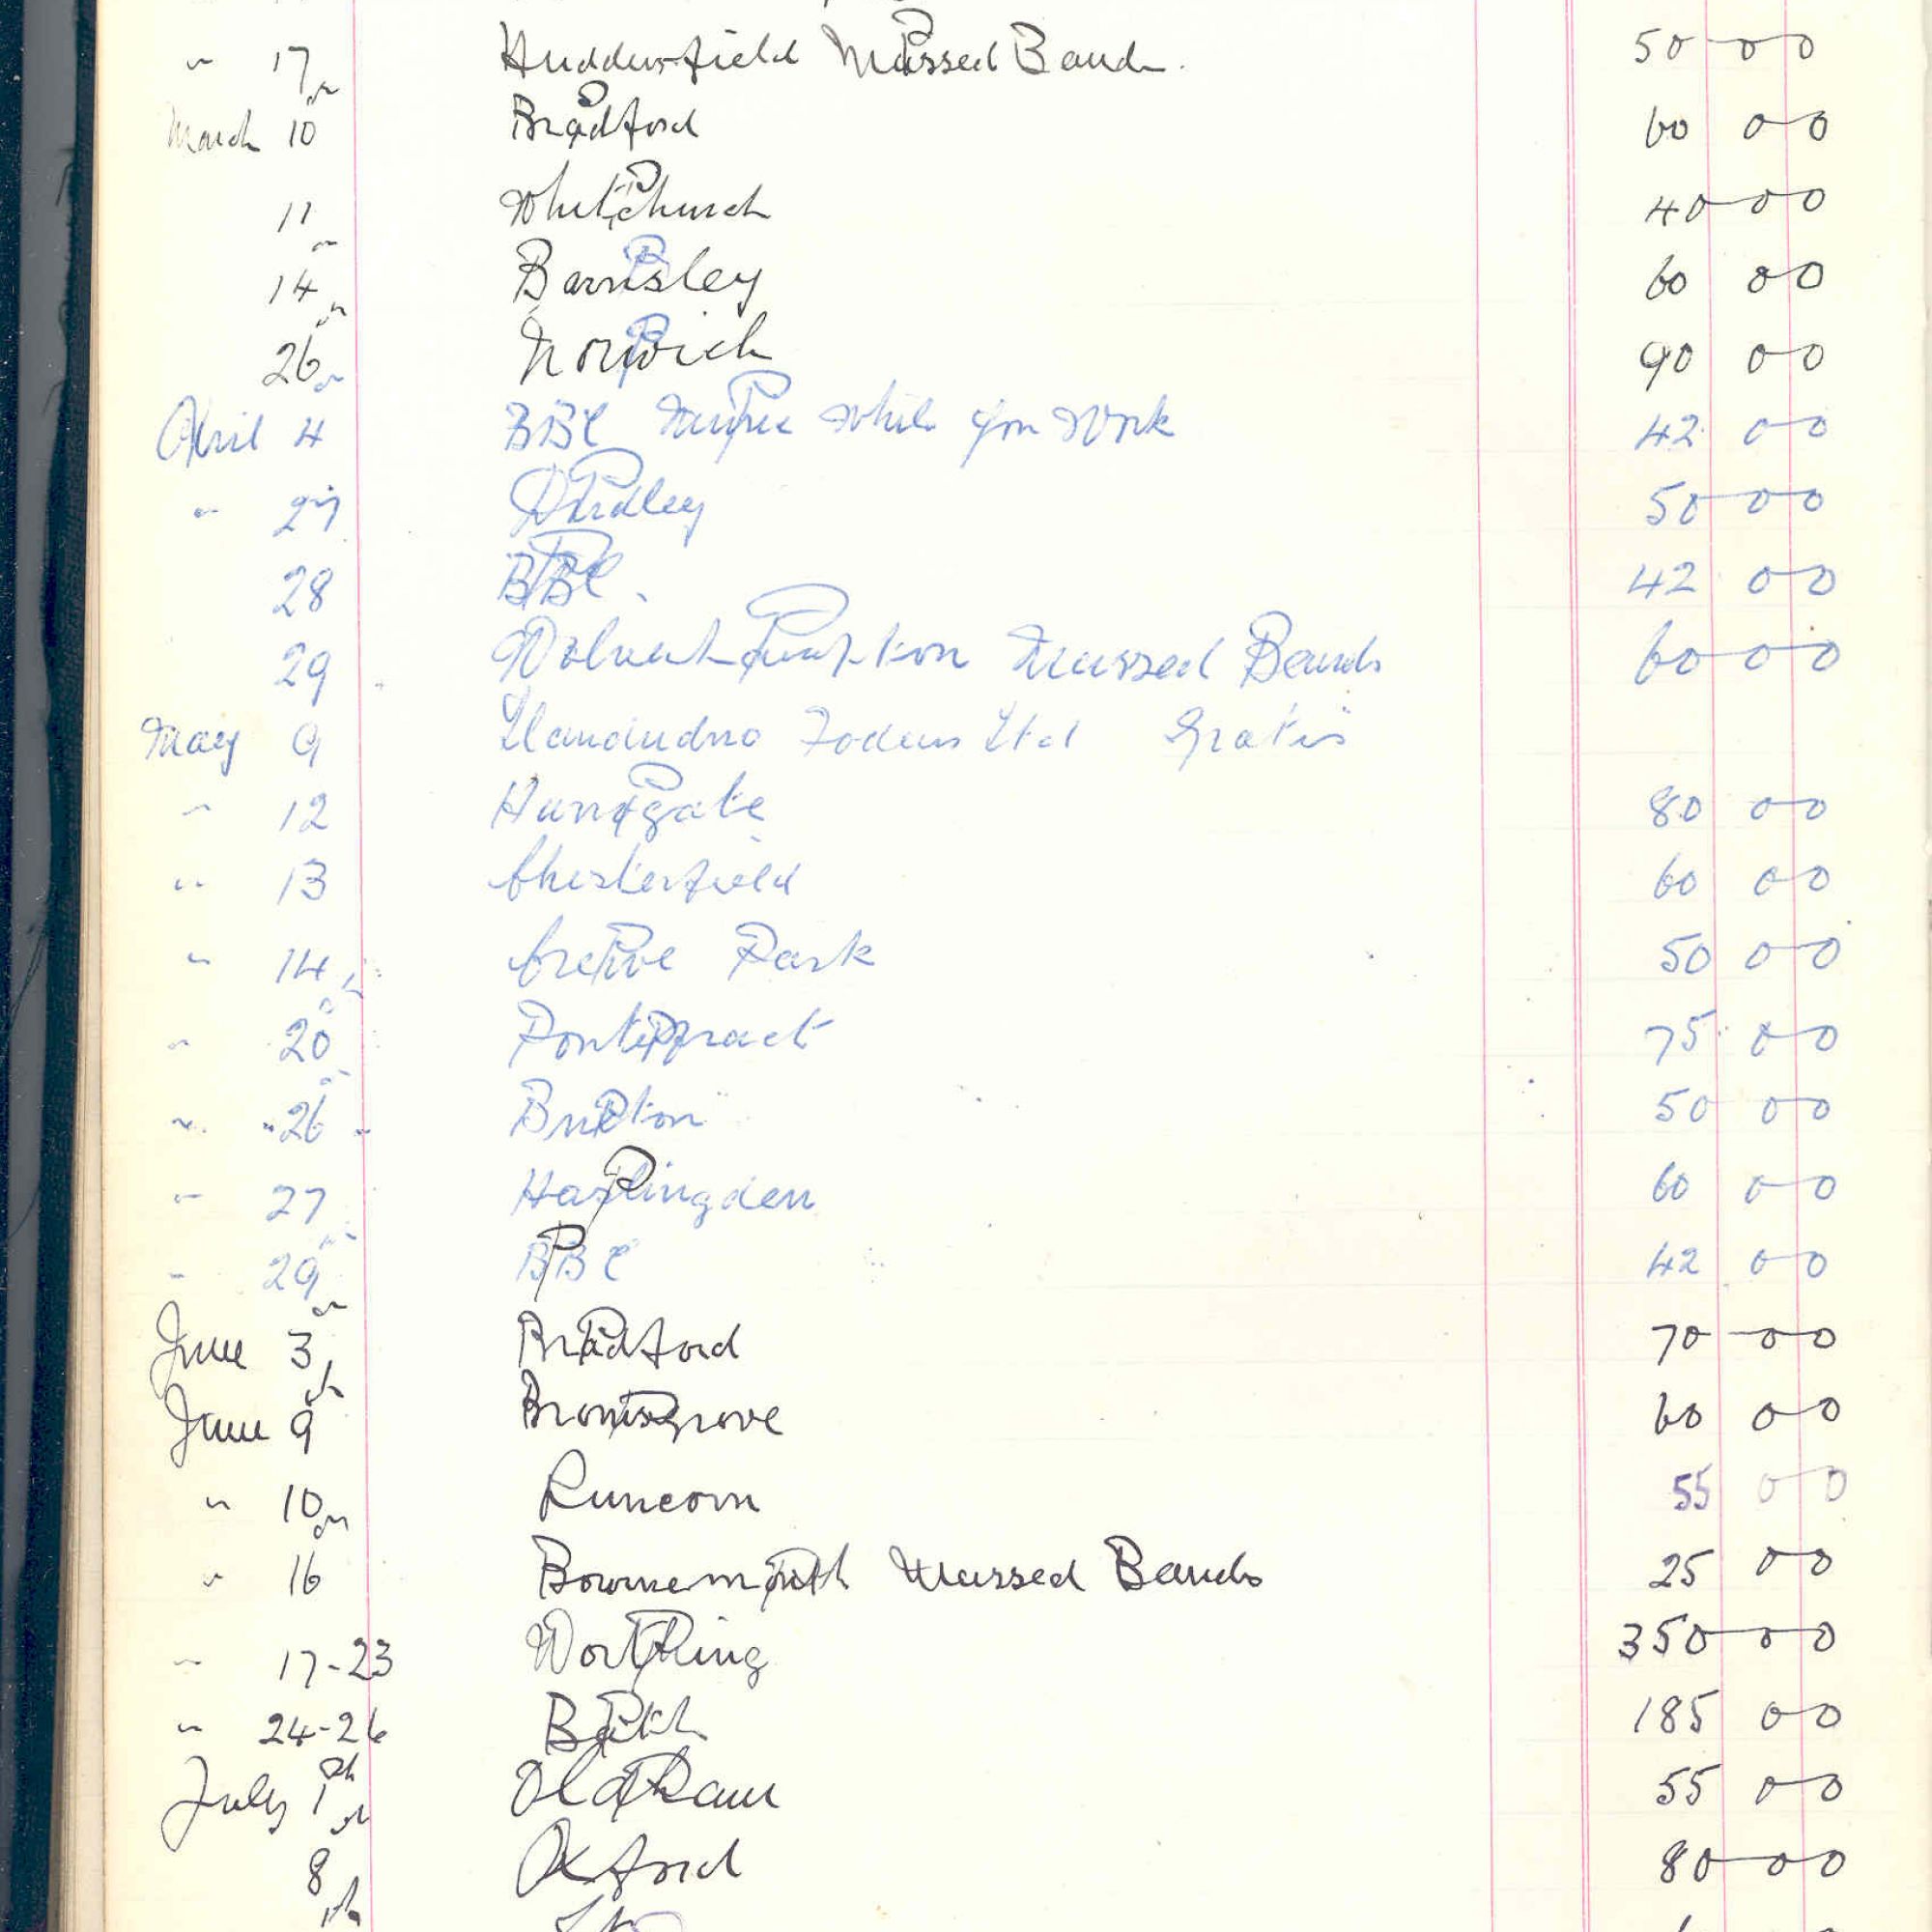 " 17 Huddersfield Massed Bands. 50-0-0
March 10 Bradford 60 0-0
11 Whitchurch 40-0-0
14 Barnsley 60 0-0
26 Norwich 90 0-0
April 4 BBC Music While You Work 42 0-0
" 27 Dudley 50-0-0
28 BBC. 42 0-0
29 Wolverhampton Massed Bands 60-0-0
May 9 Llandudno Fodens Ltd Gratis
" 12 Harrogate 80 0-0
" 13 Chesterfield 60 0-0
" 14 Crewe Park 50 0-0
" 20 Pontefract 75 0-0
" 26 Buxton 50 0-0
" 27 Haslingden 60 0-0
" 29 BBC 42 0-0
June 3 Bradford 70-0-0
June 9 Bromsgrove 60 0-0
" 10 Runcorn 55 0 0
" 16 Bournemouth Massed Bands 25 0-0
" 17-23 Worthing 350-0-0
" 24-26 Bath 185 0-0
July 1 Oldham 55 0-0
8 Oxford 80-0-0